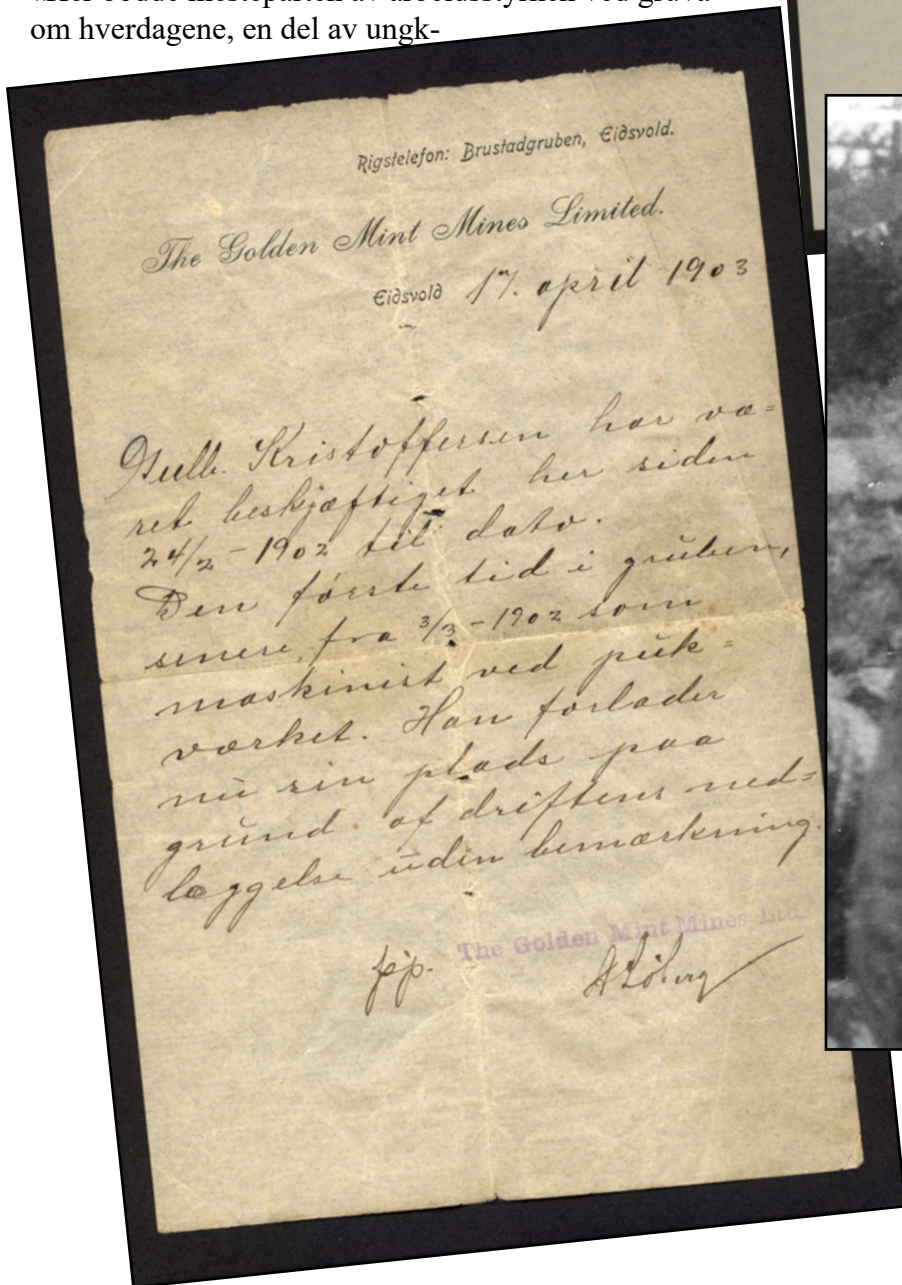 «Her bodde mesteparten av arbeidsstyrken ved gruva
om hverdagene, en del av ungk-
Rigstelefon: Brustadgruben, Eidsvold.
The Golden Mint Mines Limited.
Eidsvold 17. april 1903
Gulb. Kristoffersen har væ=
ret beskjæftiget her siden
24/2 - 1902 til dato.
Den første tid i gruben,
senere, fra 3/3 - 1902 som
maskinist ved puk=
værket. Han forlader
nu sin plads paa
grund af driftens ned=
læggelse uden bemærkning.
The Golden Mint Mines Ltd.
pp. A Løberg